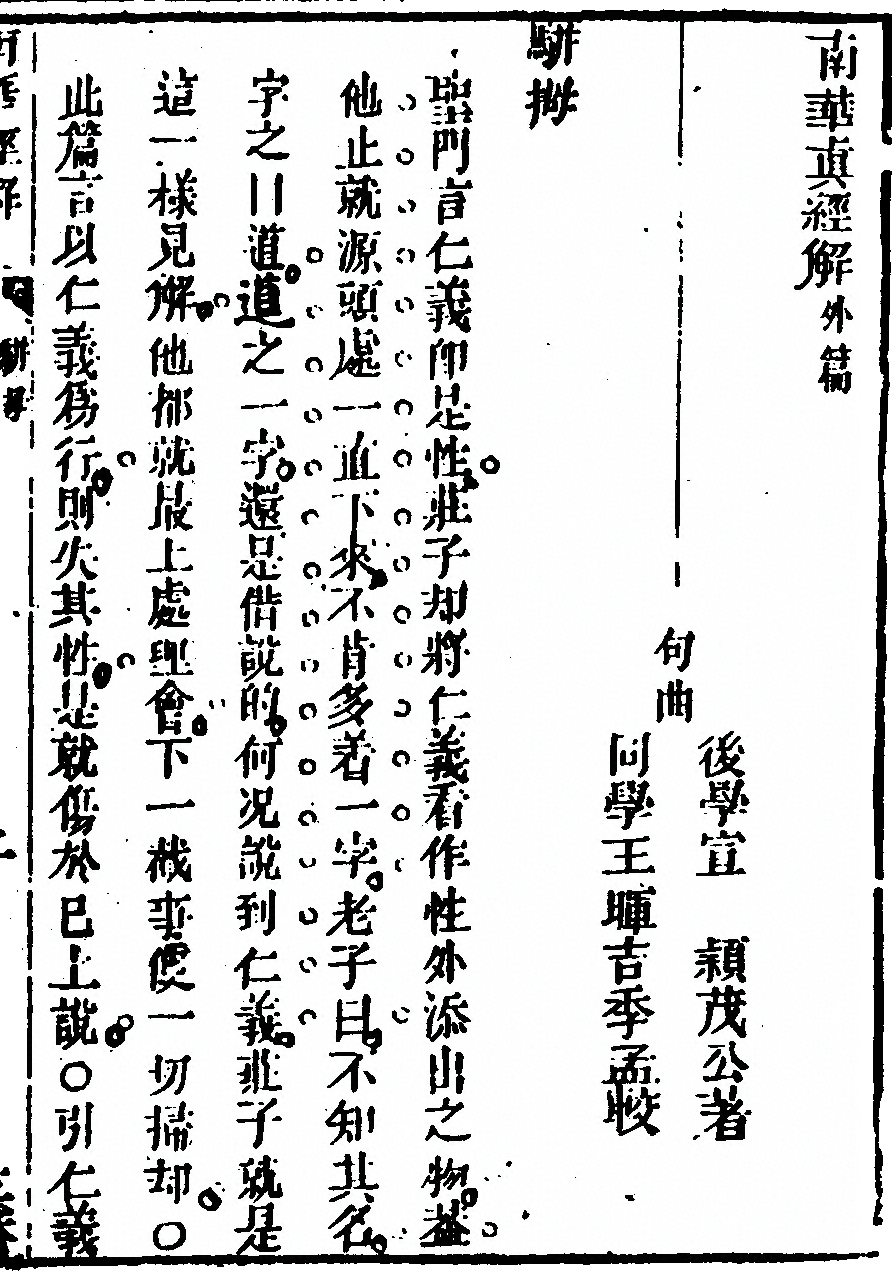 南華真經解外篇
句曲
後學宣 穎茂公著
同學王暉吉季孟較
駢拇
聖門言仁義卽是性莊子却將仁義看作性外添出之物蓋
他止就源頭處一直下來不肯多着一字老子曰不知其名
字之曰道道之一字還是借說的何况說到仁義莊子就是
這一樣見解他都就最上處理會下一截事便一切掃却○
此篇言以仁義爲行則失其性是就傷於已上說○引仁義